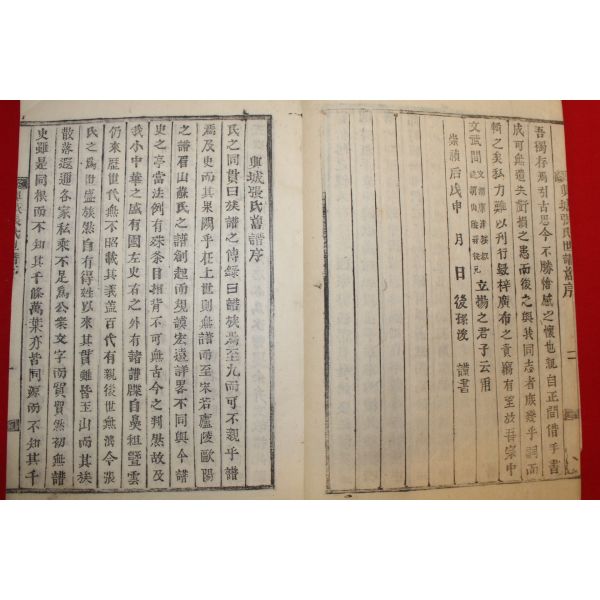 興城張氏世譜舊序 二
吾獨存焉引古思今不勝愴感之懷也親自正間借手書
成可無遺失訂損之患而後之與我同志者庶幾乎詞而
輯之矣私力難以刊行鋟梓廣布之責竊有望於吾宗中
文武間 立揚之君子云爾
崇禎后戊申 月 日後孫浚 謹書
興城張氏舊譜序
氏之同貫曰族譜之傳錄曰譜族焉至九而可不親乎譜
焉及史而其果闕乎在上世則無譜而至宋若廬陵歐陽
之譜眉山蘇氏之譜創起而規謨宏遠詳畧不同與今譜
史之亭當法例有殊条目相背不可無古今之判然故及
我小中華之有國左史右之外有諸譜牒自吳祖曁雲
仍來歷世代無不昭載其義盖百代有親後世無濟今張
氏之爲世盛族然自有得姓以來其貫雖皆玉山而其族
散落遐邇各家私乘不足爲公案文字而貿貿然初無譜
史雖是同根而不知其千條萬葉亦皆同源而不知其千